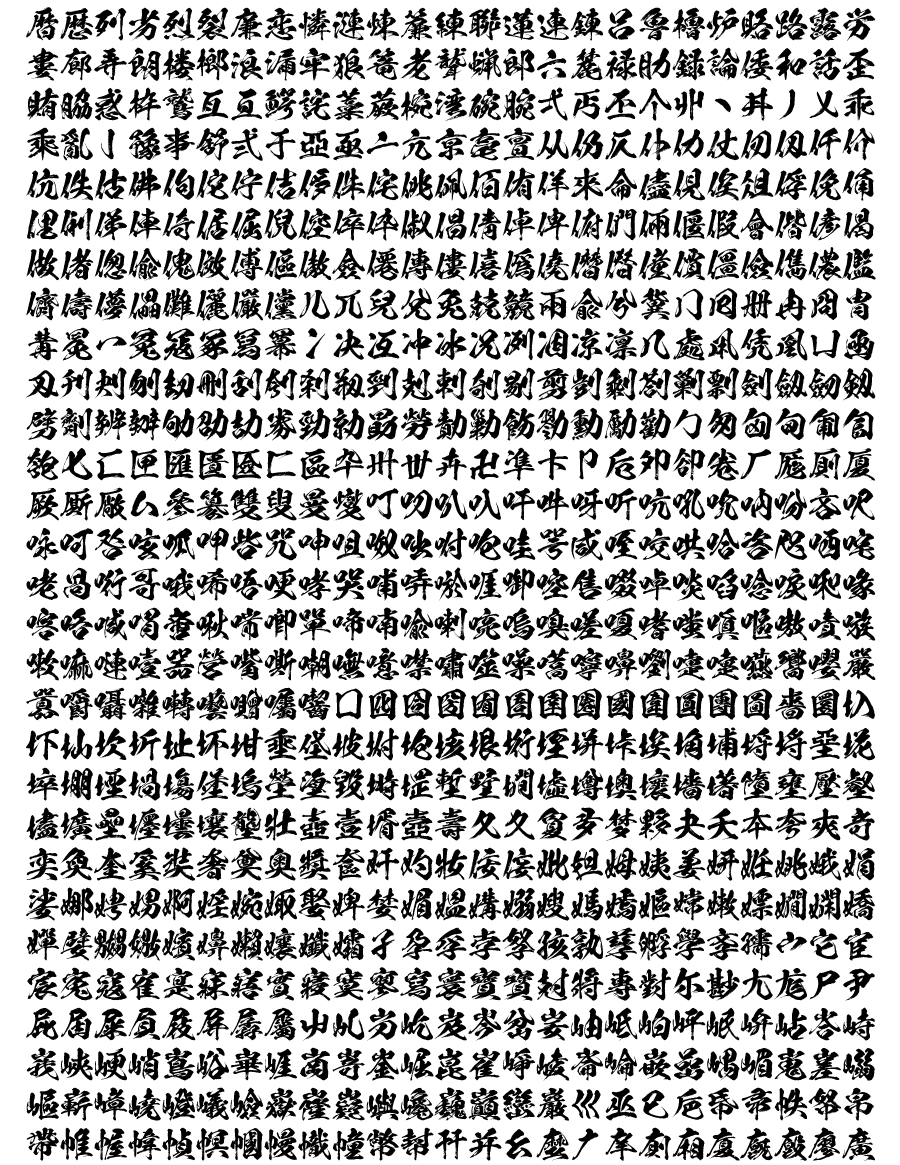 暦歴列劣烈裂廉恋憐漣煉簾練聯蓮連錬呂魯櫓炉賂路露労
婁廊弄朗楼榔浪漏牢狼篭老聾蝋郎六麓禄肋録論倭和話歪
賄脇惑枠鷲亙亘鰐詫藁蕨椀湾碗腕弌丐丕个丱丶丼丿乂乖
乘亂亅豫亊舒弍于亞亟亠亢亰亳亶从仍仄仆仂仗仞仭仟价
伉佚估佛佝佗佇佶侈侏侘佻佩佰侑佯來侖儘俔俟俎俘俛俑
俚俐俤俥倚倨倔倪倥倅伜俶倡倩倬俾俯們倆偃假會偕偐偈
做偖偬偸傀傚傅傴傲僉僊傳僂僖僞僥僭僣僮價僵儉儁儂儖
儕儔儚儡儺儷儼儻儿兀兒兌兔兢竸兩兪兮冀冂囘册冉冏冑
冓冕冖冤冦冢冩冪冫决冱冲冰况冽凅凉凛几處凩凭凰凵凾
刄刋刔刎刧刪刮刳刹剏剄剋剌剞剔剪剴剩剳剿剽劍劔劒剱
劈劑辨辧劬劭劼劵勁勍勗勞勣勦飭勠勳勵勸勹匆匈甸匍匐
匏匕匚匣匯匱匳匸區卆卅丗卉卍凖卞卩卮夘卻卷厂厖厠厦
厥厮厰厶參簒雙叟曼燮叮叨叭叺吁吽呀听吭吼吮吶吩吝呎
咏呵咎咟呱呷呰咒呻咀呶咄咐咆哇咢咸咥咬哄哈咨咫哂咤
咾咼哘哥哦唏唔哽哮哭哺哢唹啀啣啌售啜啅啖啗唸唳啝喙
喀咯喊喟啻啾喘喞單啼喃喩喇喨嗚嗅嗟嗄嗜嗤嗔嘔嗷嘖嗾
嗽嘛嗹噎噐營嘴嘶嘲嘸噫噤嘯噬噪嚆嚀嚊嚠嚔嚏嚥嚮嚶嚴
囂嚼囁囃囀囈囎囑囓囗囮囹圀囿圄圉圈國圍圓團圖嗇圜圦
圷圸坎圻址坏坩埀垈坡坿垉垓垠垳垤垪垰埃埆埔埒埓堊埖
埣堋堙堝塲堡塢塋塰毀塒堽塹墅墹墟墫墺壞墻墸墮壅壓壑
壗壙壘壥壜壤壟壯壺壹壻壼壽夂夊夐夛梦夥夬夭夲夸夾竒
奕奐奎奚奘奢奠奧奬奩奸妁妝佞侫妣妲姆姨姜妍姙姚娥娟
娑娜娉娚婀婬婉娵娶婢婪媚媼媾嫋嫂媽嫣嫗嫦嫩嫖嫺嫻嬌
嬋嬖嬲嫐嬪嬶嬾孃孅孀孑孕孚孛孥孩孰孳孵學斈孺宀它宦
宸寃寇寉寔寐寤實寢寞寥寫寰寶寳尅將專對尓尠尢尨尸尹
屁屆屎屓屐屏孱屬屮乢屶屹岌岑岔妛岫岻岶岼岷峅岾峇峙
峩峽峺峭嶌峪崋崕崗嵜崟崛崑崔崢崚崙崘嵌嵒嵎嵋嵬嵳嵶
嶇嶄嶂嶢嶝嶬嶮嶽嶐嶷嶼巉巍巓巒巖巛巫已巵帋帚帙帑帛
帶帷幄幃幀幎幗幔幟幢幤幇幵并幺麼广庠廁廂廈廐廏廖廣